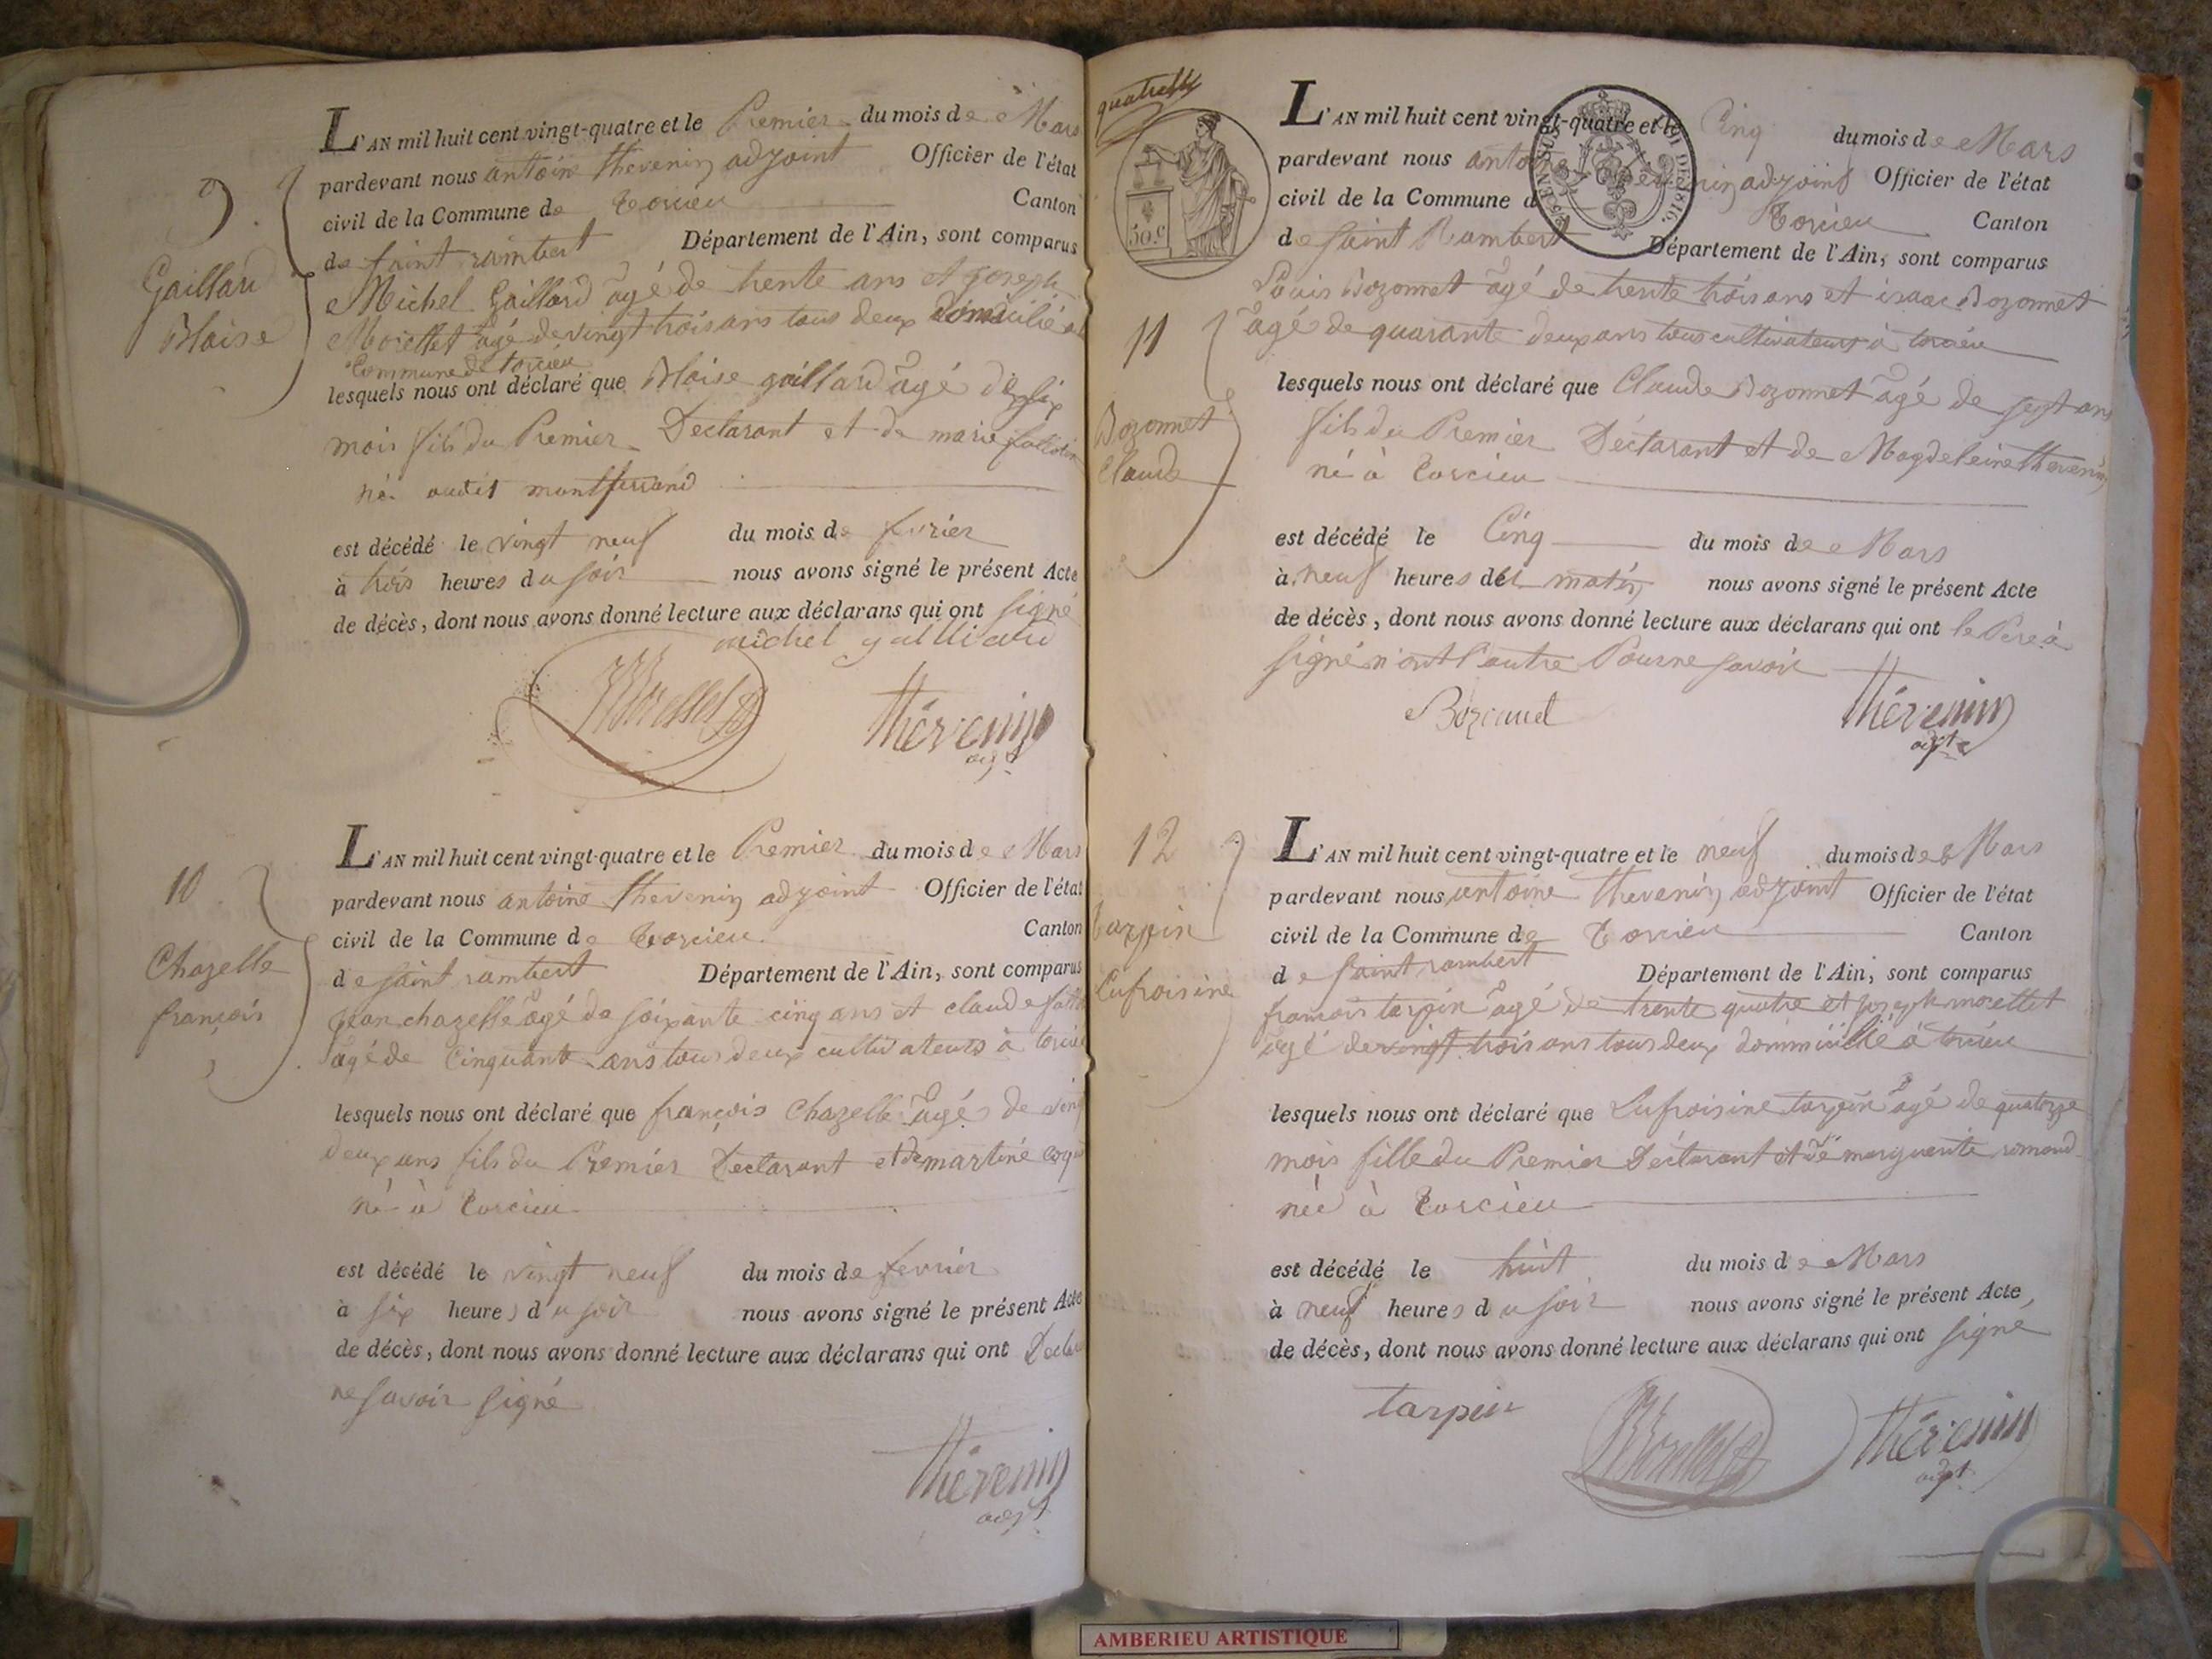 9
Gaillard
Blaise
L'AN mil huit cent vingt-quatre et le Premier du mois de Mars
pardevant nous antoine thevenin adjoint Officier de l'état
civil de la Commune de torcieu Canton
de saint rambert Département de l'Ain, sont comparus
Michel Gaillard agé de trente ans et joseph
Morellet agé de vingt trois ans tous deux domicilié
Commune de torcieu
lesquels nous ont déclaré que Blaise gaillard agé de six
mois fils du Premier Declarant et de marie
né audit montferrand
est décédé le vingt neuf du mois de fevrier
à trois heures du soir nous avons signé le présent Acte
de décès, dont nous avons donné lecture aux déclarans qui ont signé
michel galliard
Thévenin
adjt
10
Chazelle
françois
L'AN mil huit cent vingt-quatre et le Premier du mois de Mars
pardevant nous antoine thevenin adjoint Officier de l'état
civil de la Commune de torcieu Canton
de saint rambert Département de l'Ain, sont comparus
jean chazelle agé de soixante cinq ans et claude
agé de Cinquante ans tous deux cultivateurs à torcieu
lesquels nous ont déclaré que françois Chazelle agé de vingt
deux ans fils du Premier Declarant et de martine
né à torcieu
est décédé le vingt neuf du mois de fevrier
à six heures du soir nous avons signé le présent Acte
de décès, dont nous avons donné lecture aux déclarans qui ont
ne savoir signé
Thévenin
adjt
50.c
11
Bozonnet
Claude
L'AN mil huit cent vingt-quatre et le Cinq du mois de Mars
pardevant nous antoine thevenin adjoint Officier de l'état
civil de la Commune de torcieu Canton
de saint Rambert Département de l'Ain, sont comparus
Louis Bozonnet agé de trente trois ans et isaac Bozonnet
agé de quarante deux ans tous cultivateurs à torcieu
lesquels nous ont déclaré que Claude Bozonnet agé de sept ans
fils du Premier Déclarant et de Magdeleine thevenin
né à torcieu
est décédé le Cinq du mois de Mars
à neuf heures du matin nous avons signé le présent Acte
de décès, dont nous avons donné lecture aux déclarans qui ont le Pere à
signé n'ont l'autre Pour ne savoir
Thévenin
adjt
12
tarpin
Eufroisine
L'AN mil huit cent vingt-quatre et le neuf du mois de Mars
pardevant nous antoine thevenin adjoint Officier de l'état
civil de la Commune de torcieu Canton
de saint rambert Département de l'Ain, sont comparus
francois tarpin agé de trente quatre et joseph morellet
agé de vingt trois ans tous deux à torcieu
lesquels nous ont déclaré que Eufroisine tarpin agé de quatorze
mois fille du Premier Déclarant et de marguerite romand
née à torcieu
est décédé le huit du mois de Mars
à neuf heures du soir nous avons signé le présent Acte,
de décès, dont nous avons donné lecture aux déclarans qui ont signé
tarpin
Thévenin
adjt
AMBERIEU ARTISTIQUE